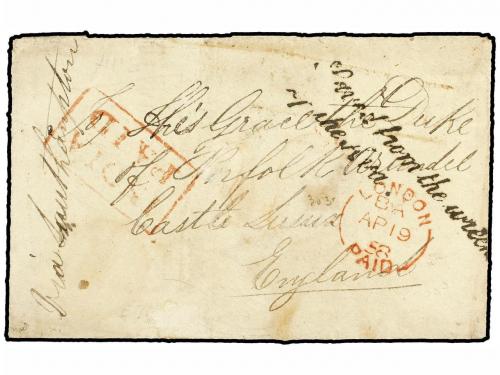 Via Southampton
To His Grace the Duke
of Norfolk Arundel
Castle Sussex
England
Saved from the wreck
of the Ava.
LONDON
AP 19
58
PAID